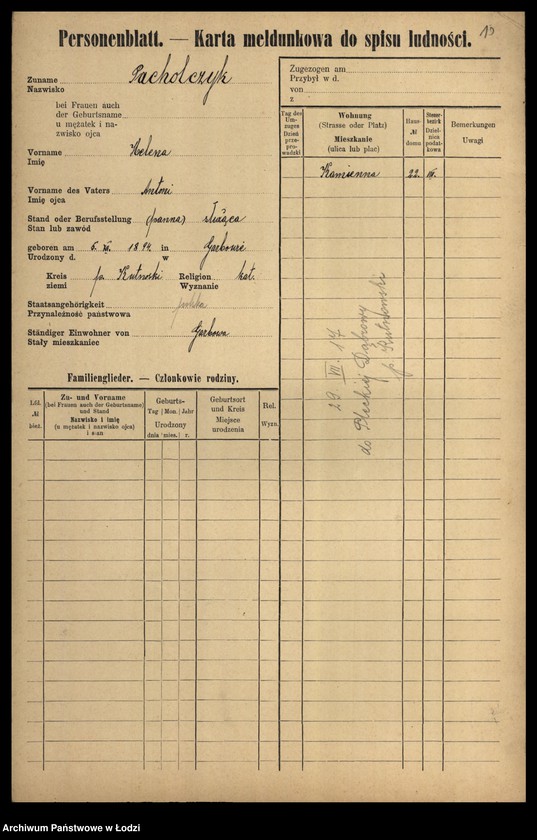 19
Personenblatt. — Karta meldunkowa do spisu ludności.
Zuname Pacholczyk
Nazwisko
bei Frauen auch
der Geburtsname
u mężatek i na-
zwisko ojca
Vorname Helena
Imię
Vorname des Vaters Antoni
Imię ojca
Stand oder Berufsstellung (panna) służąca
Stan lub zawód
geboren am 6. XI. 1894 in
Urodzony d. w
Kreis p. Kutnoski Religion kat.
ziemi Wyznanie
Staatsangehörigkeit polska
Przynależność państwowa
Ständiger Einwohner von
Stały mieszkaniec
Zugezogen am
Przybył w d.
von
z
Tag des Um-zuges Dzień prze-pro-wadzki
Wohnung
(Strasse oder Platz)
Mieszkanie
(ulica lub plac)
Haus-
№
domu
Steuer-bezirk Dziel-nica podat-kowa
Bemerkungen
Uwagi
Kamienna 22. IV.
29 VII. 17
do Dąbrowy
Familienglieder. — Członkowie rodziny.
Lfd.
№
bież.
Zu- und Vorname
(bei Frauen auch der Geburtsname)
und Stand
Nazwisko i imię
(u mężatek i nazwisko ojca)
i stan
Geburts-
Tag Mon. Jahr
Urodzony
dnia mies. r.
Geburtsort
und Kreis
Miejsce
urodzenia
Rel.
Wyzn.
Archiwum Państwowe w Łodzi